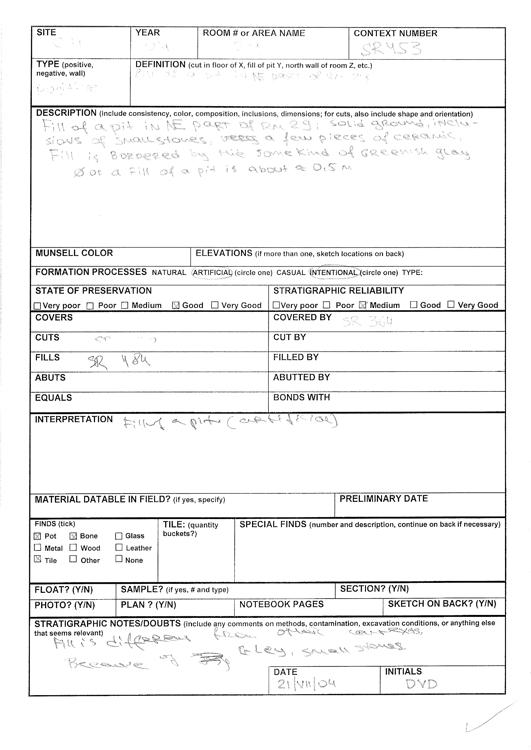 SITE YEAR ROOM # or AREA NAME CONTEXT NUMBER
SR453
TYPE (positive, negative, wall) DEFINITION (cut in floor of X, fill of pit Y, north wall of room Z, etc.)
DESCRIPTION (include consistency, color, composition, inclusions, dimensions; for cuts, also include shape and orientation)
Fill of a pit in NE part of RM 29; solid ground, inclu-
sions of small stones, a few pieces of ceramic.
Fill is Bordered by the some kind of Greenish glay
Ø of a fill of a pit is about ≈ 0,5 m
MUNSELL COLOR ELEVATIONS (if more than one, sketch locations on back)
FORMATION PROCESSES NATURAL ARTIFICIAL (circle one) CASUAL INTENTIONAL (circle one) TYPE:
STATE OF PRESERVATION STRATIGRAPHIC RELIABILITY
☐Very poor ☐ Poor ☐ Medium ☒ Good ☐ Very Good ☐Very poor ☐ Poor ☒ Medium ☐ Good ☐ Very Good
COVERS COVERED BY SR 364
CUTS CUT BY
FILLS SR 484 FILLED BY
ABUTS ABUTTED BY
EQUALS BONDS WITH
INTERPRETATION Fill of a pit (artificial)
MATERIAL DATABLE IN FIELD? (if yes, specify) PRELIMINARY DATE
FINDS (tick) TILE: (quantity buckets?) SPECIAL FINDS (number and description, continue on back if necessary)
☒ Pot ☒ Bone ☐ Glass
☐ Metal ☐ Wood ☐ Leather
☒ Tile ☐ Other ☐ None
FLOAT? (Y/N) SAMPLE? (if yes, # and type) SECTION? (Y/N)
PHOTO? (Y/N) PLAN ? (Y/N) NOTEBOOK PAGES SKETCH ON BACK? (Y/N)
STRATIGRAPHIC NOTES/DOUBTS (include any comments on methods, contamination, excavation conditions, or anything else
that seems relevant)
Fill is different from other contexts,
Because of Gley, small stones
DATE INITIALS
21/VII/04 DVD